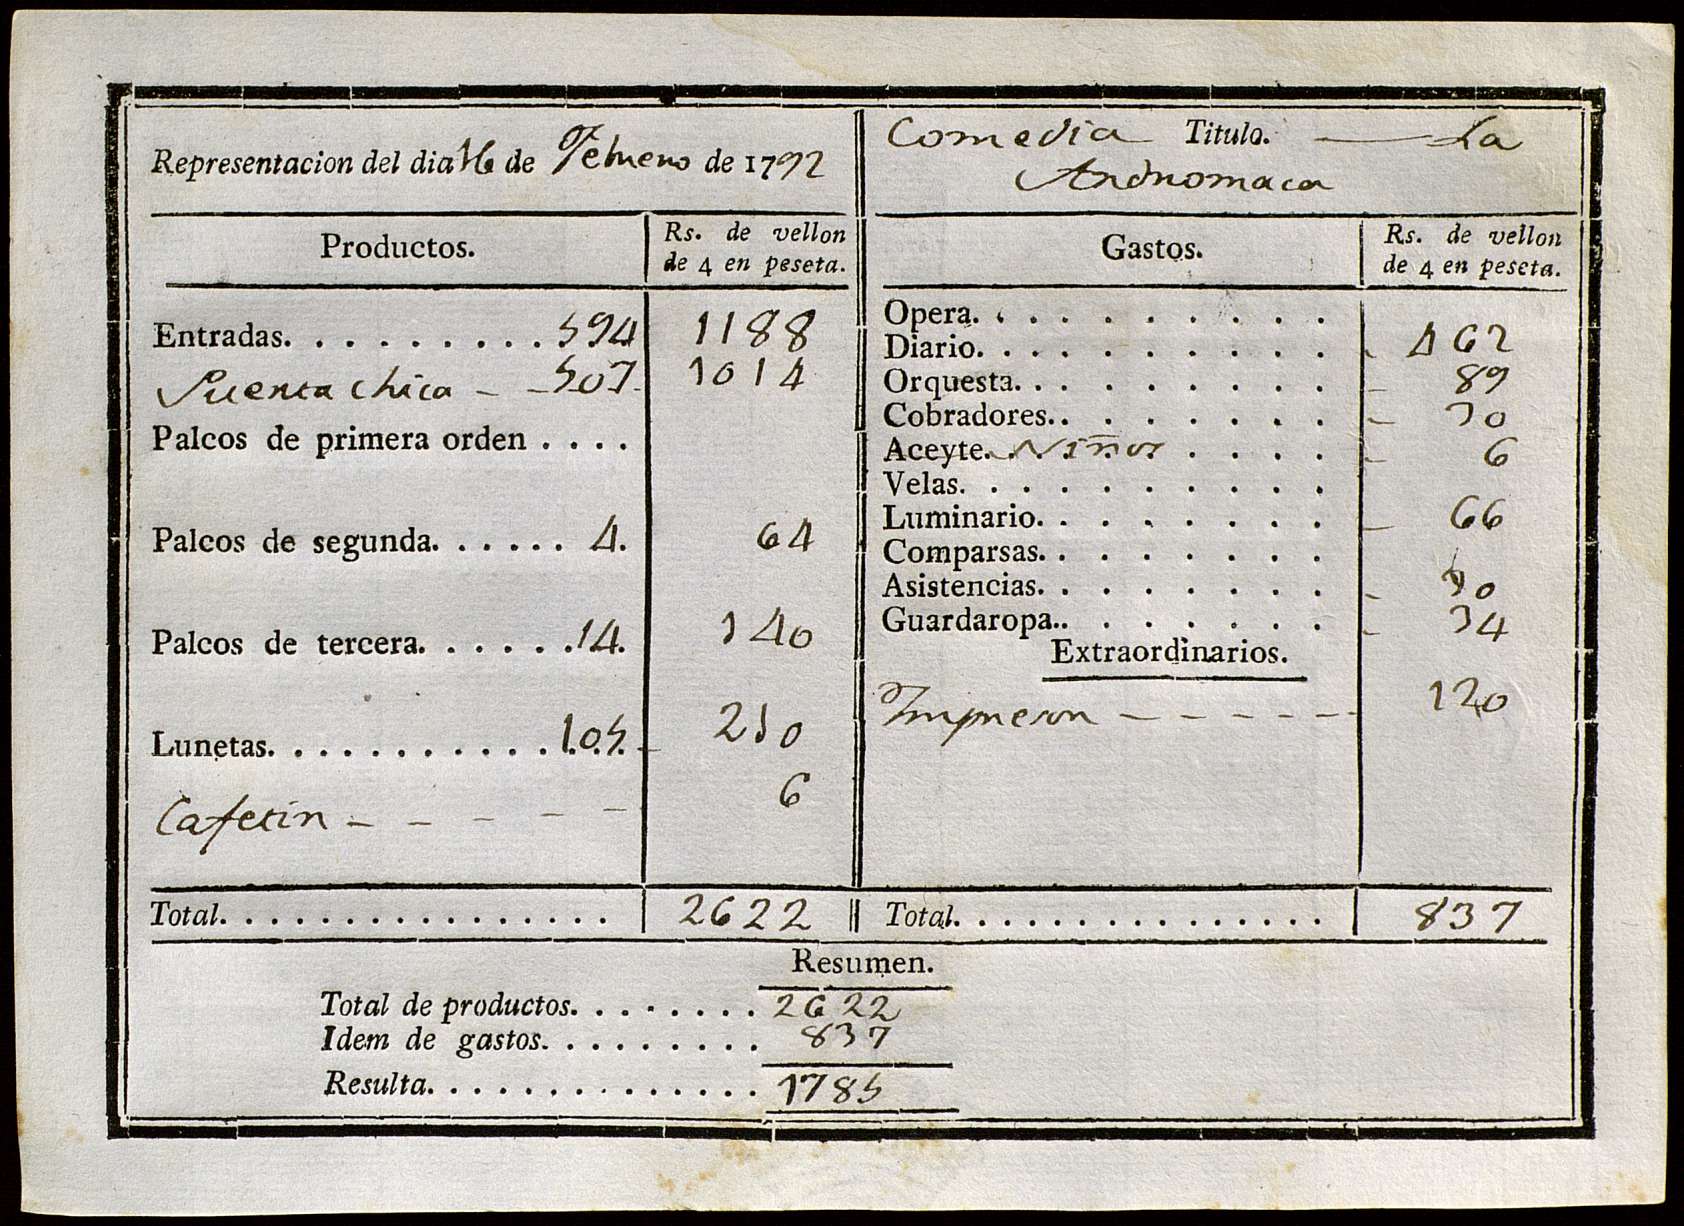 Representacion del dia 16 de Febrero de 1792
Comedia Titulo. — La
Andromaca
Productos. Rs. de vellon de 4 en peseta.
Gastos. Rs. de vellon de 4 en peseta.
Entradas. . . . . . . . . . 594 1188
Puerta chica - - 507 1014
Palcos de primera orden . . . .
Palcos de segunda. . . . . . 4. 64
Palcos de tercera. . . . . . . 14. 140
Lunetas. . . . . . . . . . . . 105. 210
Cafetin - - - - - 6
Total. . . . . . . . . . . . . . . . . 2622
Opera. . . . . . . . . .
Diario. . . . . . . . . . 462
Orquesta. . . . . . . . . 89
Cobradores. . . . . . . . 30
Aceyte. Niños . . . . 6
Velas. . . . . . . . . .
Luminario. . . . . . . . 66
Comparsas. . . . . . . .
Asistencias. . . . . . . . 30
Guardaropa. . . . . . . . 34
Extraordinarios.
Impresor - - - - - - 120
Total. . . . . . . . . . . . . . . . 837
Resumen.
Total de productos. . . . . . . . 2622
Idem de gastos. . . . . . . . . 837
Resulta. . . . . . . . . . . . . 1785